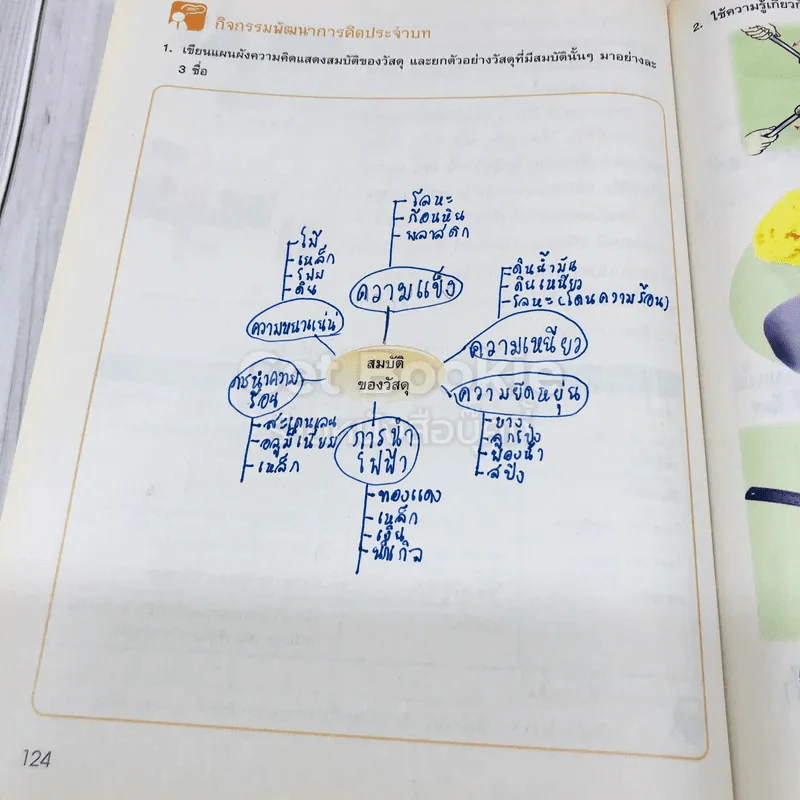 กิจกรรมพัฒนาการคิดประจำบท
1. เขียนแผนผังความคิดแสดงสมบัติของวัสดุ และยกตัวอย่างวัสดุที่มีสมบัตินั้นๆ มาอย่างละ
3 ชื่อ
โลหะ
ก้อนหิน
พลาสติก
ความแข็ง
ไม้
เหล็ก
โฟม
ดิน
ความหนาแน่น
ดินน้ำมัน
ดินเหนียว
โลหะ(โดนความร้อน)
ความเหนียว
สมบัติ
ของวัสดุ
ความยืดหยุ่น
ยาง
ลูกโป่ง
ฟองน้ำ
สปิง
การนำความ
ร้อน
สแตนเลน
อลูมิเนียม
เหล็ก
การนำ
ไฟฟ้า
ทองแดง
เหล็ก
เงิน
นิกเกิล
Get Bookie
124
2. ใช้ความรู้เกี่ยวกั